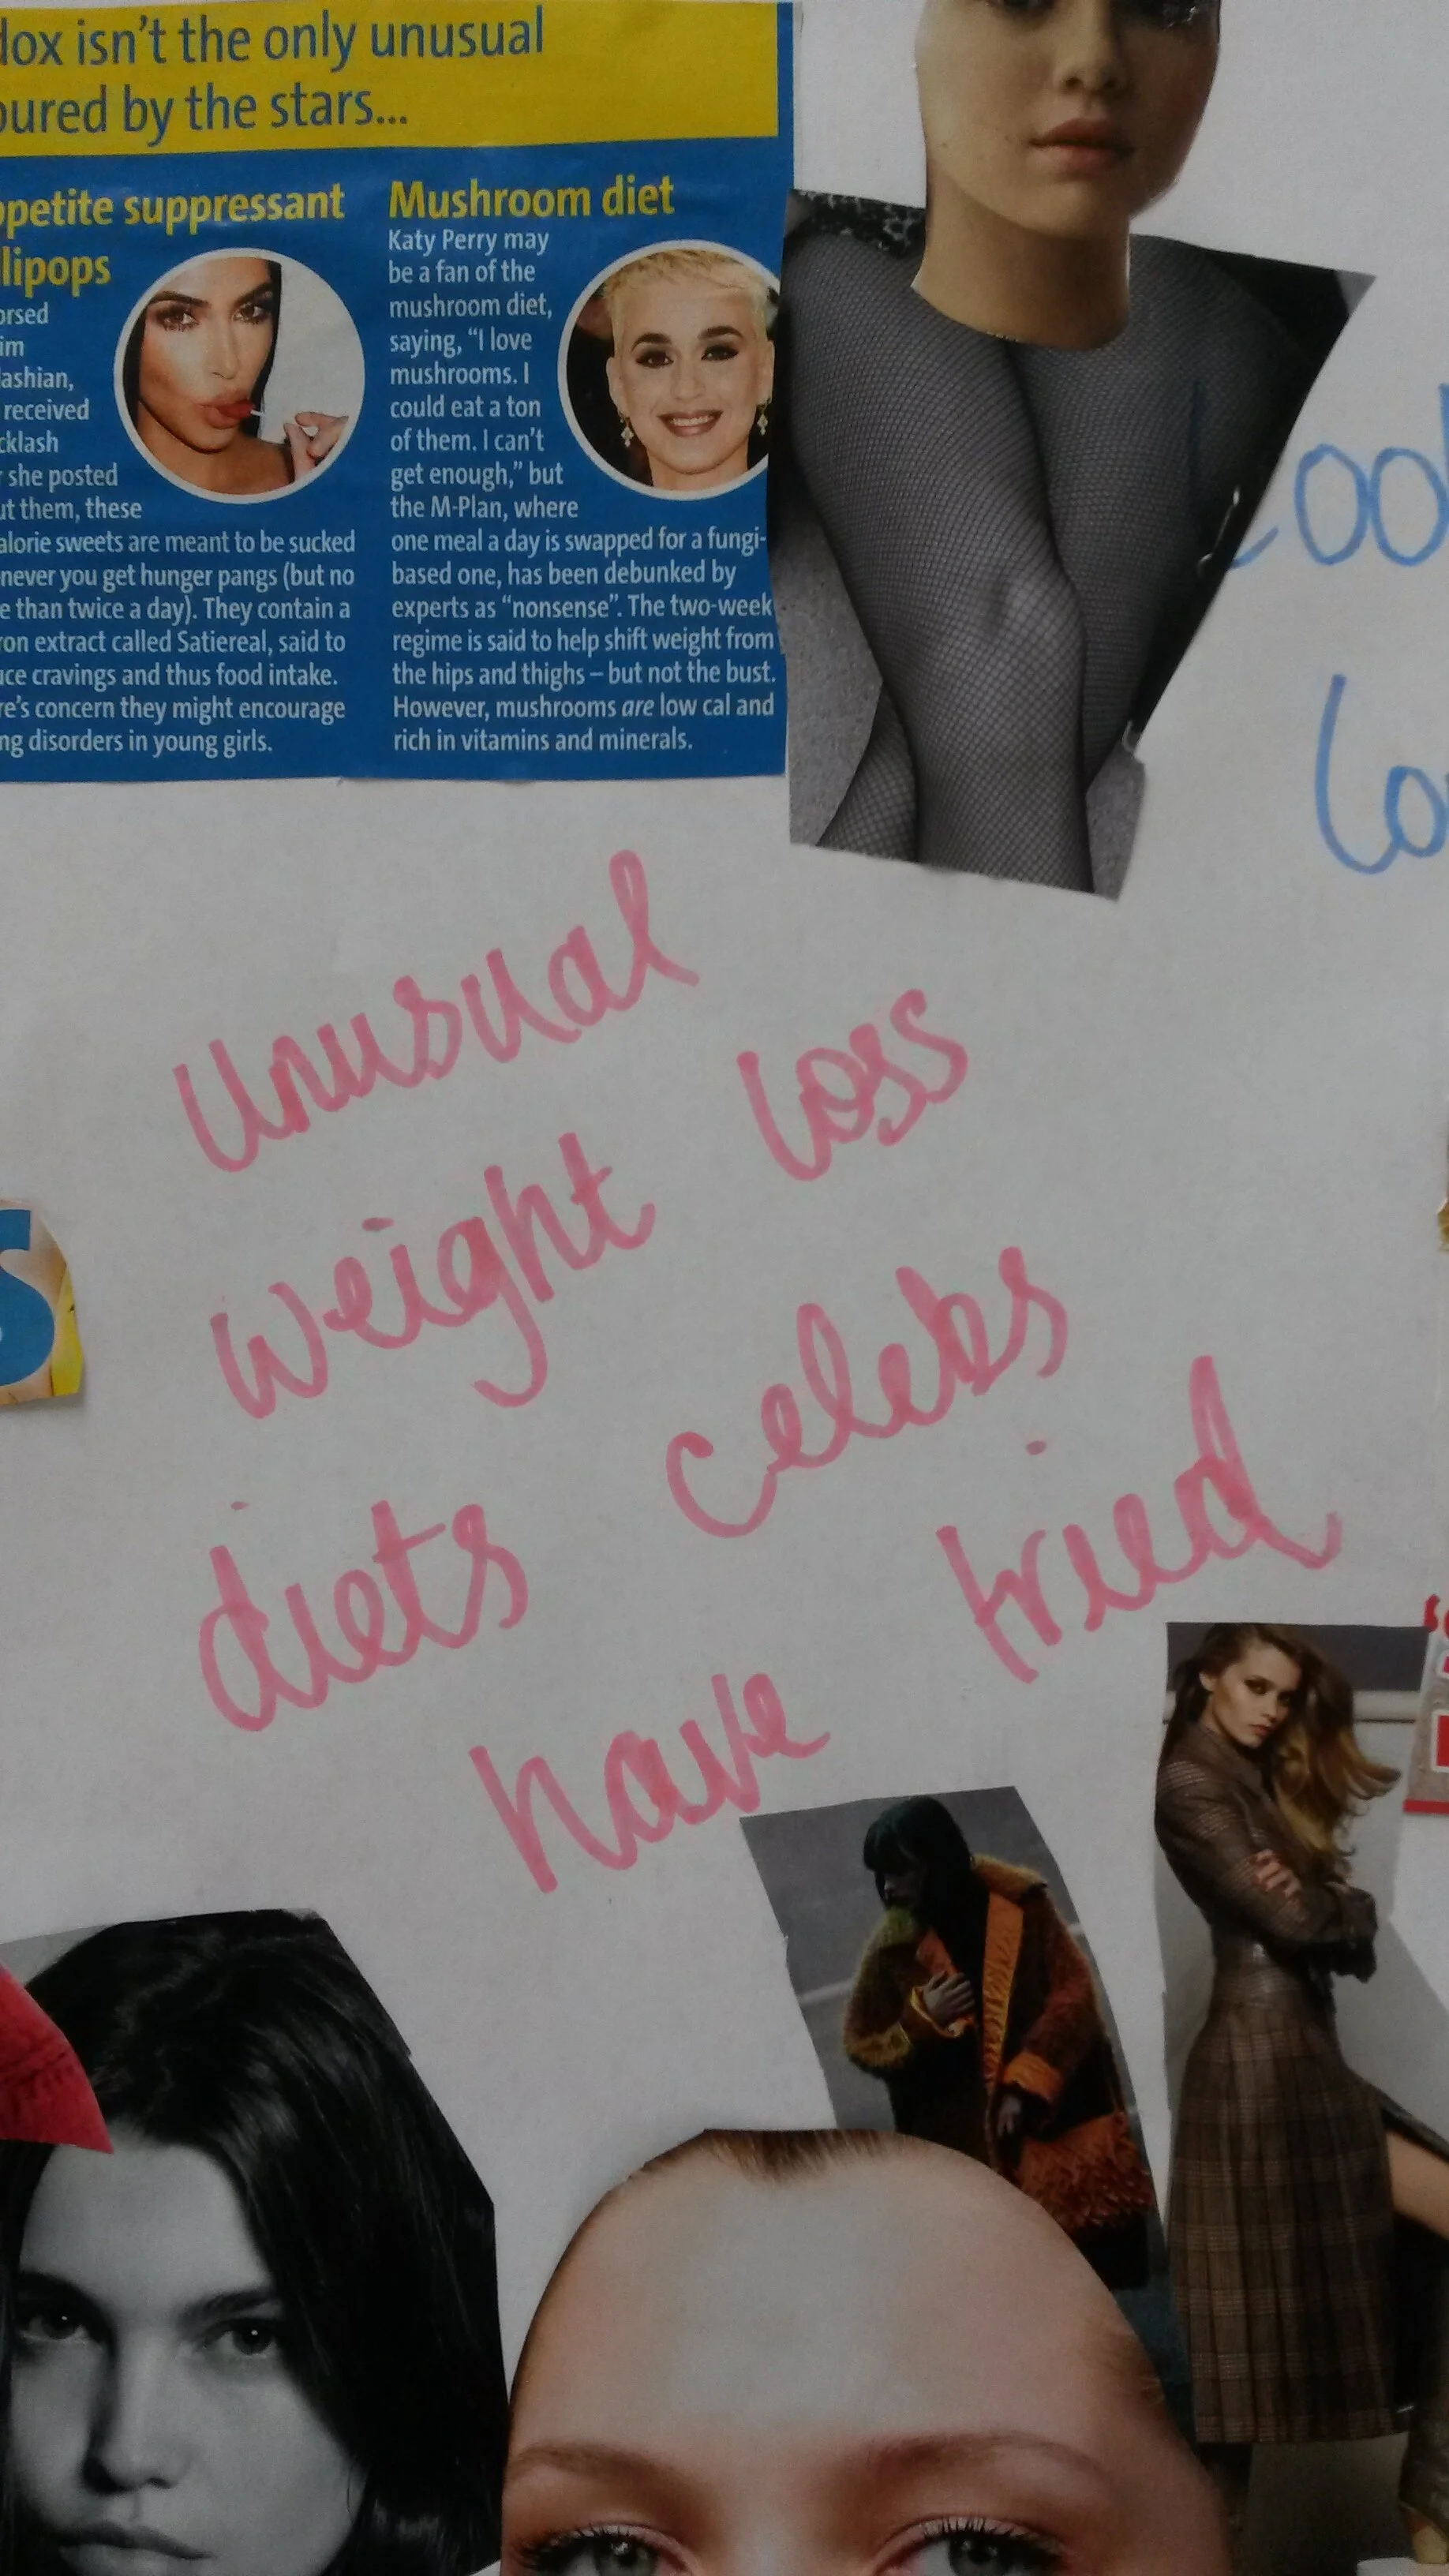 isn't the only unusual
by the stars...
suppressant
Mushroom diet
Katy Perry may
be a fan of the
mushroom diet,
saying, "I love
mushrooms. I
could eat a ton
of them. I can't
get enough," but
the M-Plan, where
one meal a day is swapped for a fungi-
based one, has been debunked by
experts as "nonsense". The two-week
regime is said to help shift weight from
the hips and thighs – but not the bust.
However, mushrooms are low cal and
rich in vitamins and minerals.
received
she posted
them, these
sweets are meant to be sucked
you get hunger pangs (but no
than twice a day). They contain a
extract called Satiereal, said to
cravings and thus food intake.
concern they might encourage
disorders in young girls.
unusual
weight loss
diets celebs
have tried